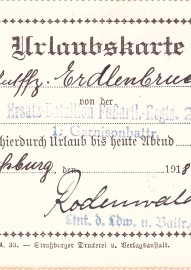 Urlaubskarte
utffz. Erdlenbruc
von der
Ersatz-Bataillon Fußartl.-Regts. 2
1. Garnisonbattr.
hierdurch Urlaub bis heute Abend
ßburg 1918
Rodenwal
Ltnt. d. Ldw. u. Battr.
33. — Straßburger Druckerei u. Verlagsanstalt.